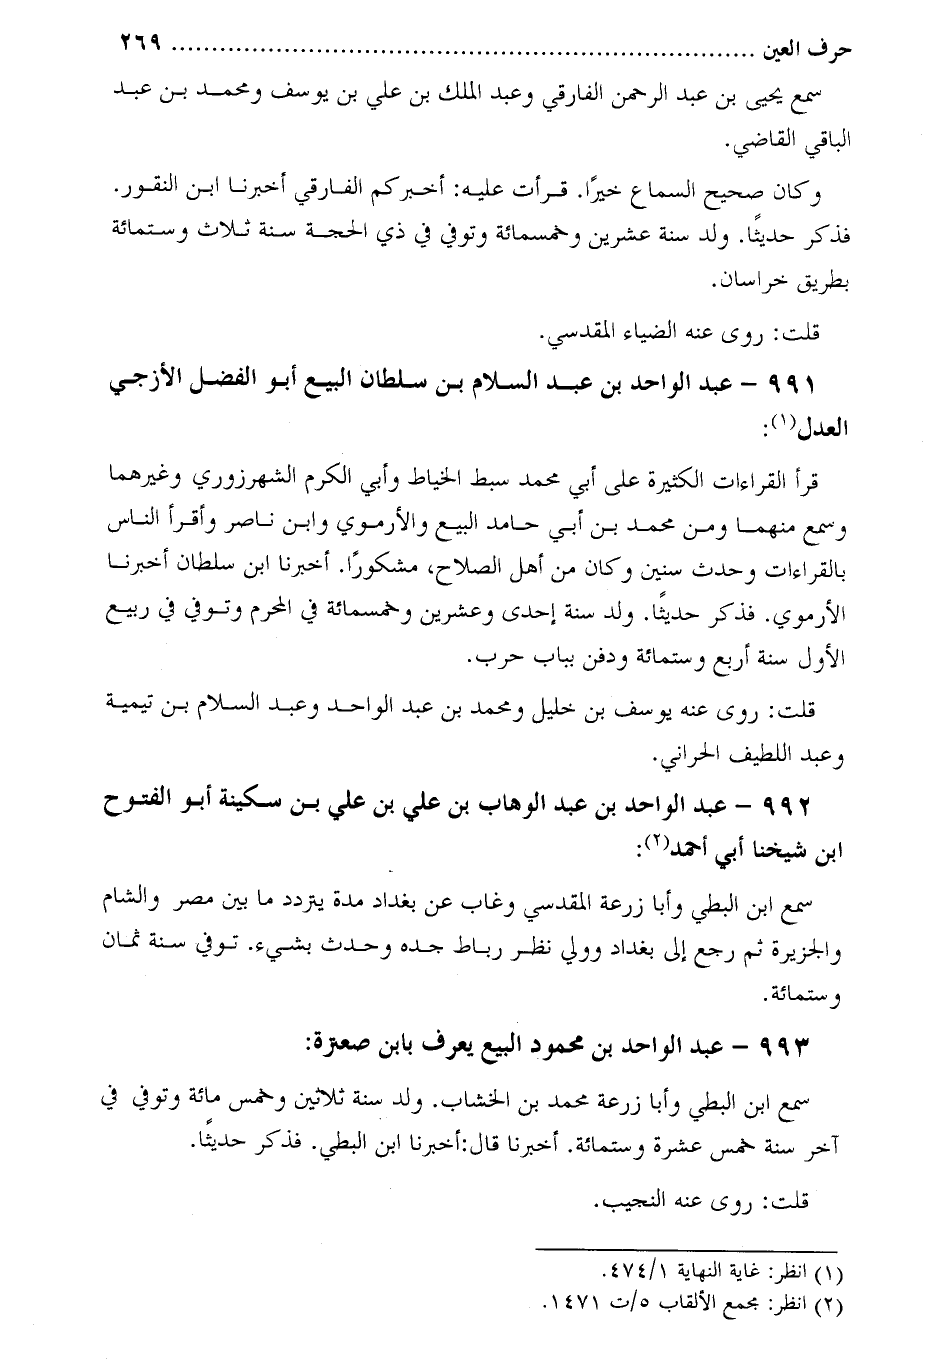 حرف العين ........................................................................ ٢٦٩
سمع يحيى بن عبد الرحمن الفارقي وعبد الملك بن علي بن يوسف ومحمد بن عبد
الباقي القاضي.
وكان صحيح السماع خيرًا. قرأت عليه: أخبركم الفارقي أخبرنا ابن النقور.
فذكر حديثًا. ولد سنة عشرين وخمسمائة وتوفي في ذي الحجة سنة ثلاث وستمائة
بطريق خراسان.
قلت: روى عنه الضياء المقدسي.
٩٩١ – عبد الواحد بن عبد السلام بن سلطان البيع أبو الفضل الأزجي
العدل(١):
قرأ القراءات الكثيرة على أبي محمد سبط الخياط وأبي الكرم الشهرزوري وغيرهما
وسمع منهما ومن محمد بن أبي حامد البيع والأرموي وابن ناصر وأقرأ الناس
بالقراءات وحدث سنين وكان من أهل الصلاح، مشكورًا. أخبرنا ابن سلطان أخبرنا
الأرموي. فذكر حديثًا. ولد سنة إحدى وعشرين وخمسمائة في المحرم وتوفي في ربيع
الأول سنة أربع وستمائة ودفن بباب حرب.
قلت: روى عنه يوسف بن خليل ومحمد بن عبد الواحد وعبد السلام بن تيمية
وعبد اللطيف الحراني.
٩٩٢ – عبد الواحد بن عبد الوهاب بن علي بن علي بن سكينة أبو الفتوح
ابن شيخنا أبي أحمد(٢):
سمع ابن البطي وأبا زرعة المقدسي وغاب عن بغداد مدة يتردد ما بين مصر والشام
والجزيرة ثم رجع إلى بغداد وولي نظر رباط جده وحدث بشيء. توفي سنة ثمان
وستمائة.
٩٩٣ – عبد الواحد بن محمود البيع يعرف بابن صعترة:
سمع ابن البطي وأبا زرعة محمد بن الخشاب. ولد سنة ثلاثين وخمس مائة وتوفي في
آخر سنة خمس عشرة وستمائة. أخبرنا قال:أخبرنا ابن البطي. فذكر حديثًا.
قلت: روى عنه النجيب.
(١) انظر: غاية النهاية ٤٧٤/١.
(٢) انظر: مجمع الألقاب ٥/ت ١٤٧١.